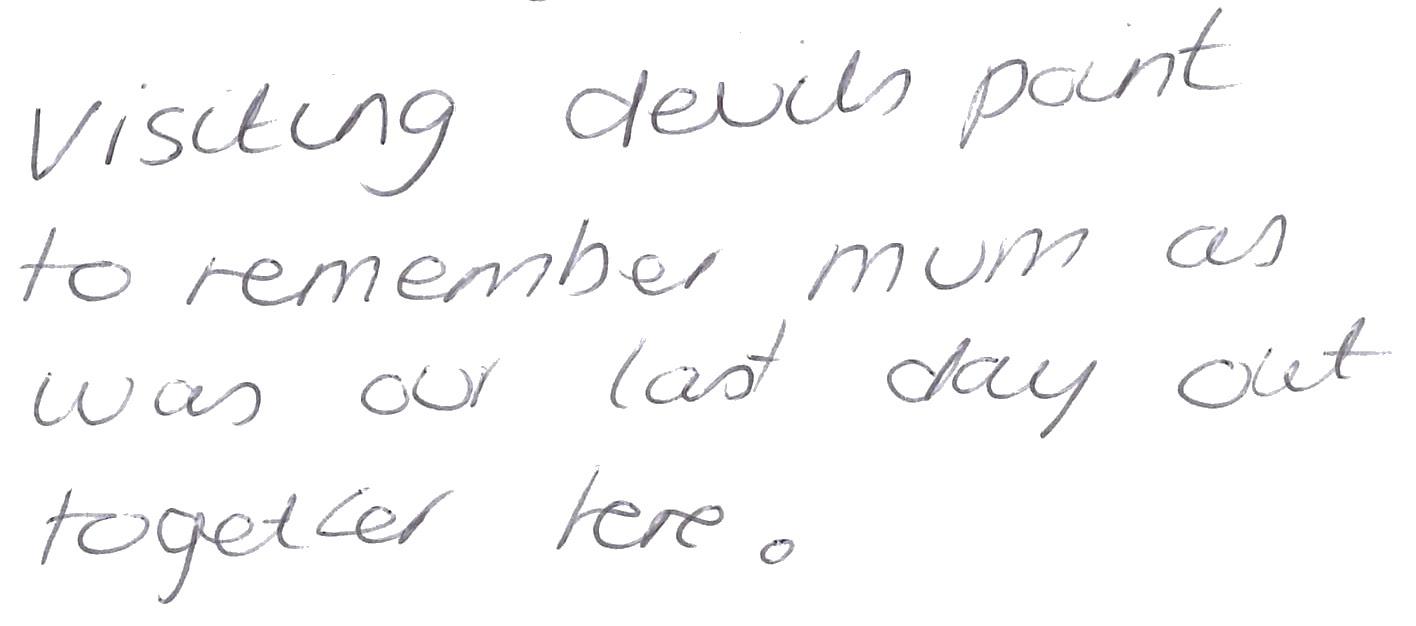 Visiting devils point
to remember mum as
was our last day out
together here.